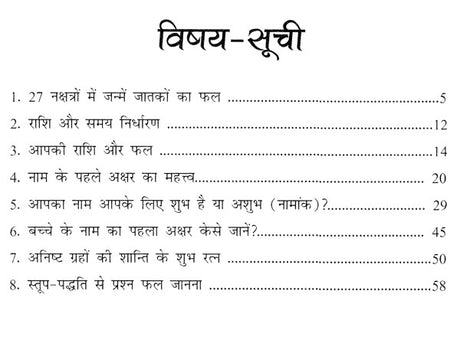 विषय-सूची
1. 27 नक्षत्रों में जन्में जातकों का फल ........................................ 5
2. राशि और समय निर्धारण .................................................... 12
3. आपकी राशि और फल ...................................................... 14
4. नाम के पहले अक्षर का महत्त्व............................................. 20
5. आपका नाम आपके लिए शुभ है या अशुभ (नामांक)?................... 29
6. बच्चे के नाम का पहला अक्षर केसे जानें?................................ 45
7. अनिष्ट ग्रहों की शान्ति के शुभ रत्न ....................................... 50
8. स्तूप-पद्धति से प्रश्न फल जानना .......................................... 58